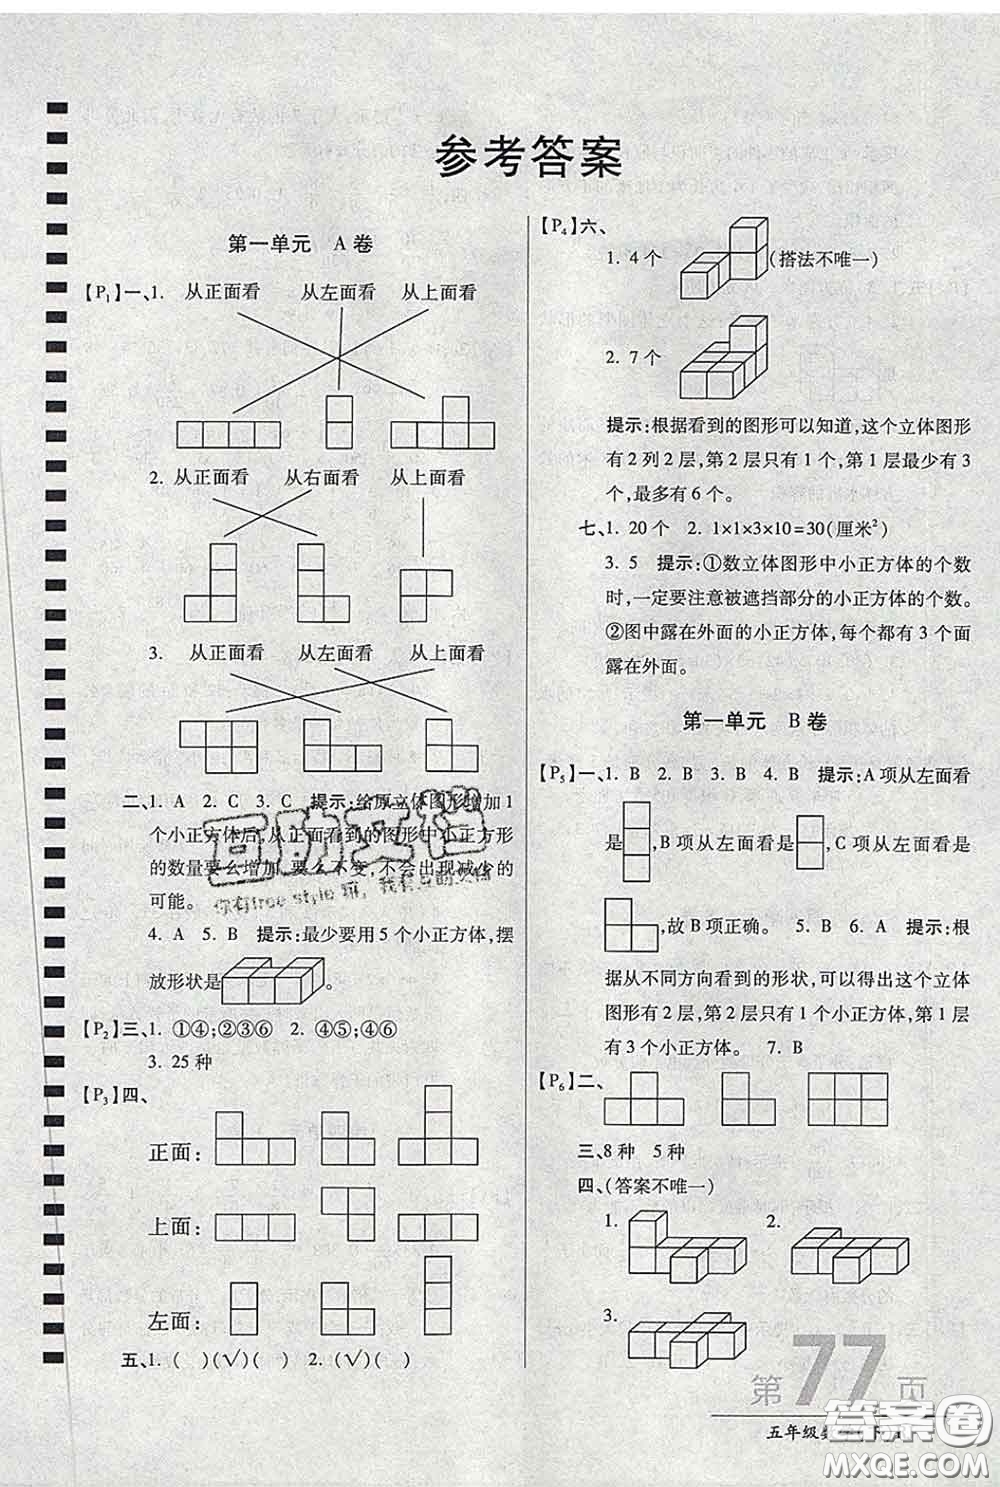 参考答案
第一单元 A 卷
【P₁】一、1. 从正面看 从左面看 从上面看
2. 从正面看 从右面看 从上面看
3. 从正面看 从左面看 从上面看
二、1. A 2. C 3. C 提示:给原立体图形增加 1
个小正方体后,从正面看到的图形中小正方形
的数量要么增加,要么不变,不会出现减少的
可能。
4. A 5. B 提示:最少要用 5 个小正方体,摆
放形状是 。
【P₂】三、1. ①④;②③⑥ 2. ④⑤;④⑥
3. 25 种
【P₃】四、
正面:
上面:
左面:
五、1. ( )(√)( ) 2. (√)( )
【P₄】六、
1. 4 个 (搭法不唯一)
2. 7 个
提示:根据看到的图形可以知道,这个立体图形
有 2 列 2 层,第 2 层只有 1 个,第 1 层最少有 3
个,最多有 6 个。
七、1. 20 个 2. 1×1×3×10=30(厘米²)
3. 5 提示:①数立体图形中小正方体的个数
时,一定要注意被遮挡部分的小正方体的个数。
②图中露在外面的小正方体,每个都有 3 个面
露在外面。
第一单元 B 卷
【P₅】一、1. B 2. B 3. B 4. B 提示:A 项从左面看
是 ,B 项从左面看是 ,C 项从左面看是
,故 B 项正确。 5. B 6. A 提示:根
据从不同方向看到的形状,可以得出这个立体
图形有 2 层,第 2 层只有 1 个小正方体,第 1 层
有 3 个小正方体。 7. B
【P₆】二、
三、8 种 5 种
四、(答案不唯一)
1. 2.
3.
第 77 页
五年级数
互助文档
你有free style 嘛,我有互助文档
答案圈
MXQE.COM